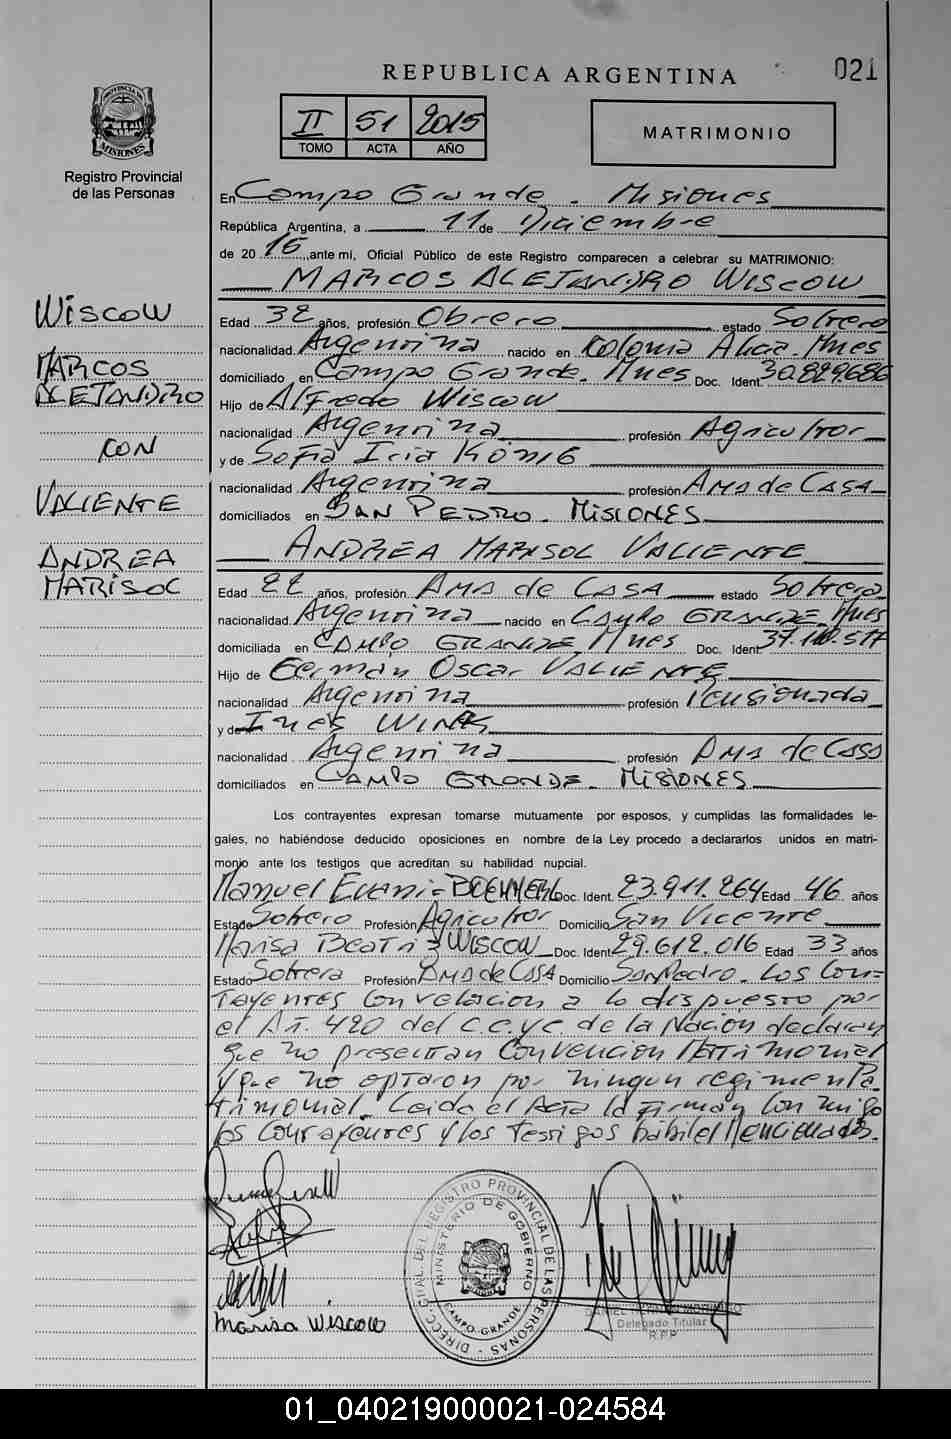 REPUBLICA ARGENTINA
021
II 51 2015
TOMO ACTA AÑO
MATRIMONIO
PROVINCIA DE
MISIONES
Registro Provincial
de las Personas
WISCOW
MARCOS
ALEJANDRO
CON
VALIENTE
ANDREA
MARISOL
En Campo Grande - Misiones
República Argentina, a 11 de Diciembre
de 2015, ante mí, Oficial Público de este Registro comparecen a celebrar su MATRIMONIO:
MARCOS ALEJANDRO WISCOW
Edad 32 años, profesión Obrero estado Soltero
nacionalidad Argentina nacido en Colonia Alicia - Mnes
domiciliado en Campo Grande - Mnes Doc. Ident. 30.829.686
Hijo de Alfredo Wiscow
nacionalidad Argentina profesión Agricultor
y de Sofia Iria König
nacionalidad Argentina profesión Ama de Casa
domiciliados en SAN PEDRO - MISIONES
ANDREA MARISOL VALIENTE
Edad 22 años, profesión Ama de CASA estado Soltera
nacionalidad Argentina nacido en CAMPO GRANDE - Mnes
domiciliada en CAMPO GRANDE - Mnes Doc. Ident. 37.110.517
Hijo de German Oscar VALIENTE
nacionalidad Argentina profesión Pensionada
y de Inés WINK
nacionalidad Argentina profesión Ama de Casa
domiciliados en CAMPO GRANDE - MISIONES
Los contrayentes expresan tomarse mutuamente por esposos, y cumplidas las formalidades le-
gales, no habiéndose deducido oposiciones en nombre de la Ley procedo a declararlos unidos en matri-
monio ante los testigos que acreditan su habilidad nupcial.
Manuel Doc. Ident. 23.911.264 Edad 46 años
Estado Soltero Profesión Agricultor Domicilio San Vicente
Marisa Beatriz WISCOW Doc. Ident. 29.612.016 Edad 33 años
Estado Soltera Profesión Ama de Casa Domicilio San Pedro - Los Con=
Trayentes Con relacion a lo dispuesto por
el Art. 420 del C.C.yC. de la Nación declaran
que no presentan Convencion Matrimonial
y que no optaron por ningun regimen Pa-
trimonial - Leida el Acta la firman conmigo
los contrayentes y los Testigos hábiles Mencionados.
Marisa Wiscow
DIRECCION GRAL. DEL REGISTRO PROVINCIAL DE LAS PERSONAS
MINISTERIO DE GOBIERNO
CAMPO GRANDE
Delegado Titular
R.P.P.
01_040219000021-024584